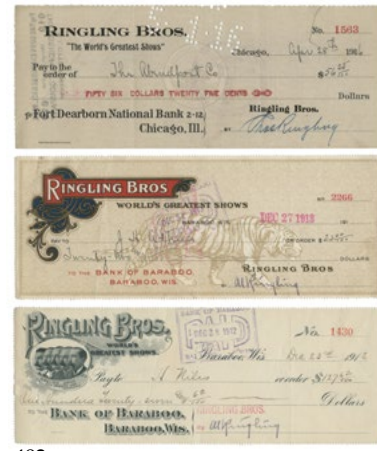 RINGLING BROS.
"The World's Greatest Shows"
No. 1563
Chicago, Apr 28th 191
Pay to the order of $56 25/100
FIFTY SIX DOLLARS TWENTY FIVE CENTS
Dollars
Fort Dearborn National Bank 2-12,
Chicago, Ill.
Ringling Bros.
BY
RINGLING BROS
WORLD'S GREATEST SHOWS
No. 2266
BARABOO, WIS. DEC 27 1913
PAY TO
OR ORDER $
DOLLARS
TO THE BANK OF BARABOO,
BARABOO, WIS.
RINGLING BROS
Al Ringling
RINGLING BROS.
WORLD'S GREATEST SHOWS.
BANK OF
PAID
No. 1430
Baraboo, Wis Dec 25th 1912
Pay to A Wiles or order $127 50/100
One hundred twenty-seven & 50/100 Dollars
TO THE BANK OF BARABOO,
BARABOO, WIS.
RINGLING BROS.
Al Ringling